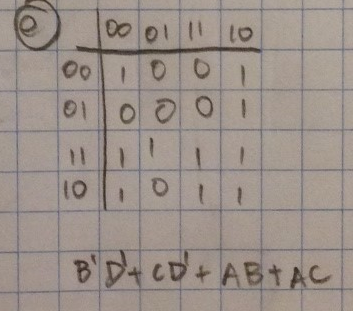 e 00 01 11 10
00 1 0 0 1
01 0 0 0 1
11 1 1 1 1
10 1 0 1 1
B'D'+CD'+AB+AC